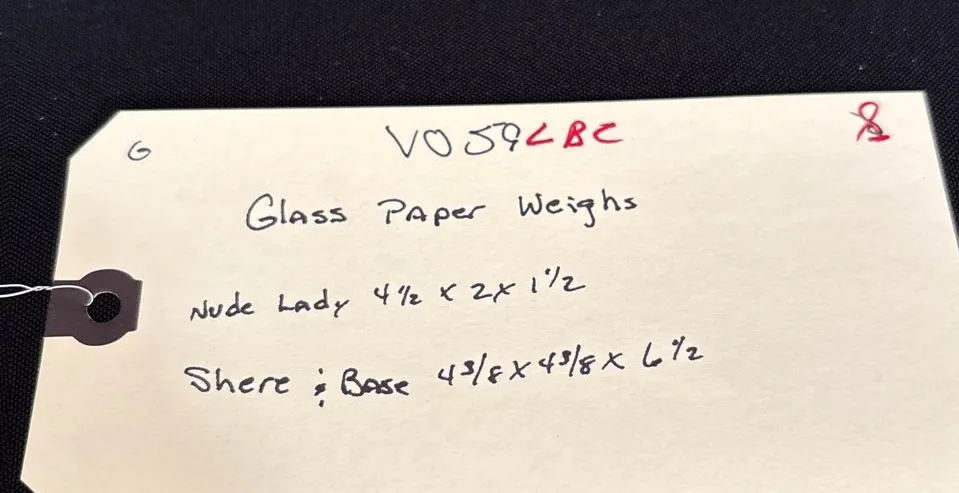 G VO59LBC
Glass Paper Weighs
Nude Lady 4 1/2 x 2 x 1 1/2
Shere & Base 4 3/8 x 4 3/8 x 6 1/2